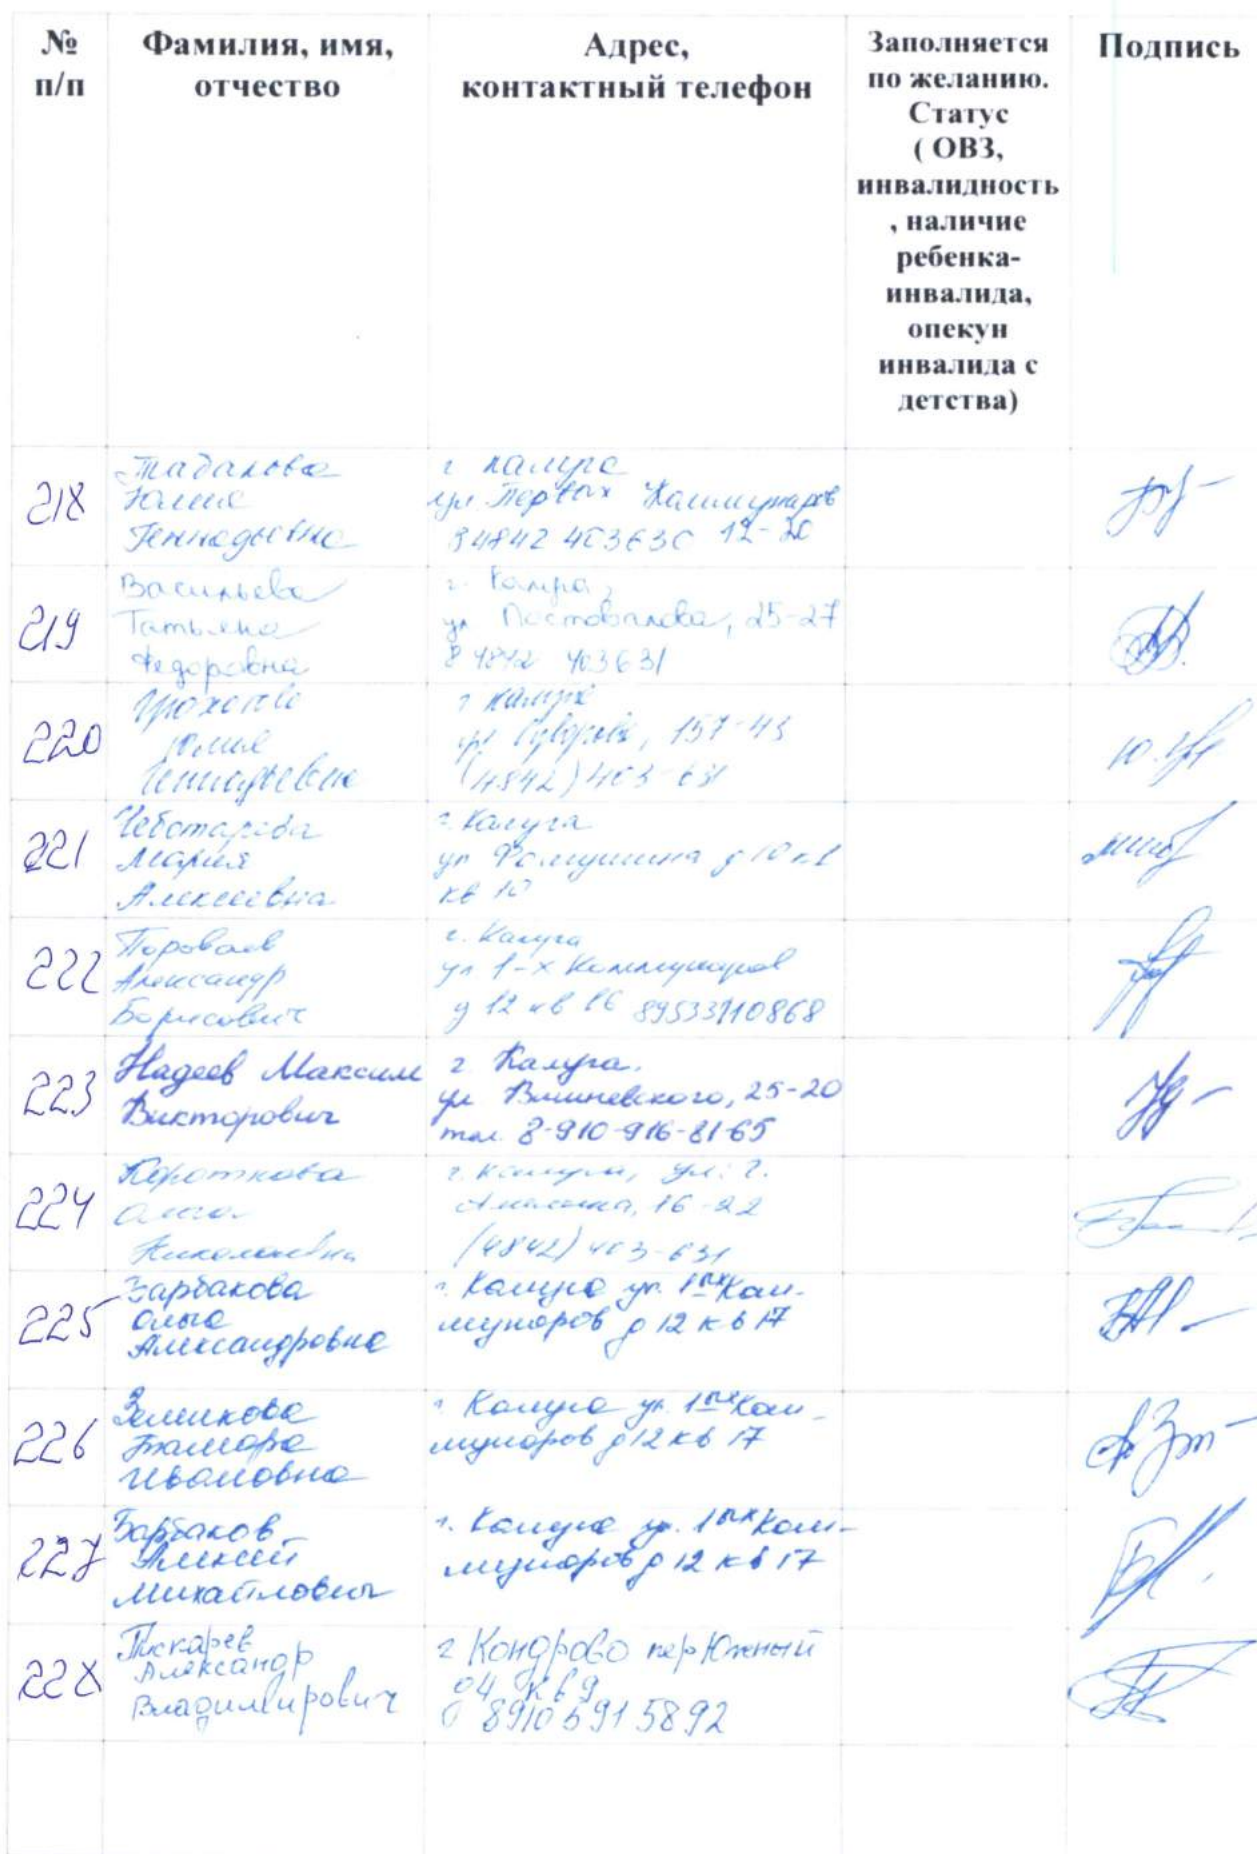 №
п/п
Фамилия, имя,
отчество
Адрес,
контактный телефон
Заполняется
по желанию.
Статус
( ОВЗ,
инвалидность
, наличие
ребенка-
инвалида,
опекун
инвалида с
детства)
Подпись
218
Геннадьевна
г Калуга
ул Первых Коммунаров
84842 403630 12-20
219
Васильева
Татьяна
Федоровна
г. Калуга,
ул Постовалова, 25-27
8 4842 403631
220
Юлия
Геннадьевна
г Калуга
ул Суворова, 157-43
(4842) 403-631
221
Чеботарева
Мария
Алексеевна
г. Калуга
ул д 10 к1
кв 10
222
Александр
Борисович
г. Калуга
ул 1-х Коммунаров
д 12 кв 16 89533110868
223
Надеев Максим
Викторович
г. Калуга.
ул Вишневского, 25-20
тел. 8-910-916-81-65
224
Короткова
Ольга
Николаевна
г. Калуга, ул. Г.
Амелина, 16-22
(4842) 403-631
225
Барбакова
Ольга
Александровна
г. Калуга ул. 1ых Ком-
мунаров д 12 кв 17
226
Тамара
Ивановна
г. Калуга ул. 1ых Ком-
мунаров д 12 кв 17
227
Барбаков
Алексей
Михайлович
г. Калуга ул. 1ых Ком-
мунаров д 12 кв 17
228
Пискарев
Александр
Владимирович
г Кондрово пер Южный
д4 кв9
8910 591 5892